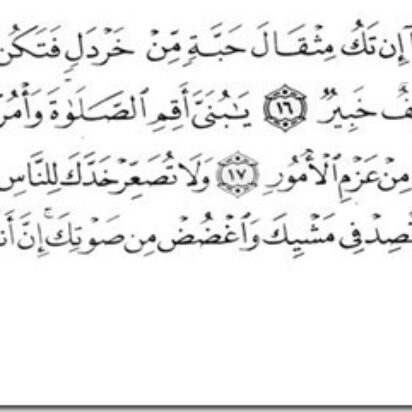 إِن تَكُ مِثْقَالَ حَبَّةٍ مِّنْ خَرْدَلٍ فَتَكُن
خَبِيرٌ ١٦ يَٰبُنَىَّ أَقِمِ ٱلصَّلَوٰةَ وَأْمُرْ
مِنْ عَزْمِ ٱلْأُمُورِ ١٧ وَلَا تُصَعِّرْ خَدَّكَ لِلنَّاسِ
صِدْ فِى مَشْيِكَ وَٱغْضُضْ مِن صَوْتِكَ ۚ إِنَّ أَن